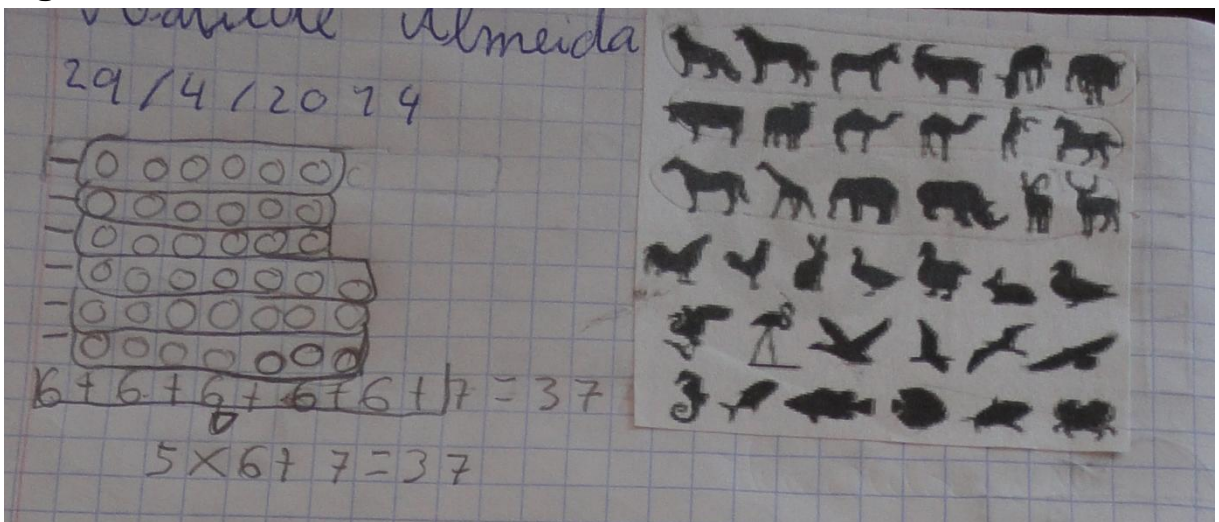 Almeida
29/4/2014
6 + 6 + 6 + 6 + 6 + 7 = 37
5 × 6 + 7 = 37